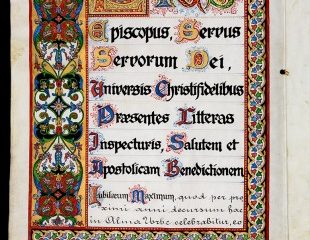 Episcopus, Servus
Servorum Dei,
Universis Christifidelibus
Præsentes Litteras
Inspecturis, Salutem et
Apostolicam Benedictionem
Iubilæum Maximum, quod per pro
ximi anni decursum hac
in Alma Urbe celebrabitur,